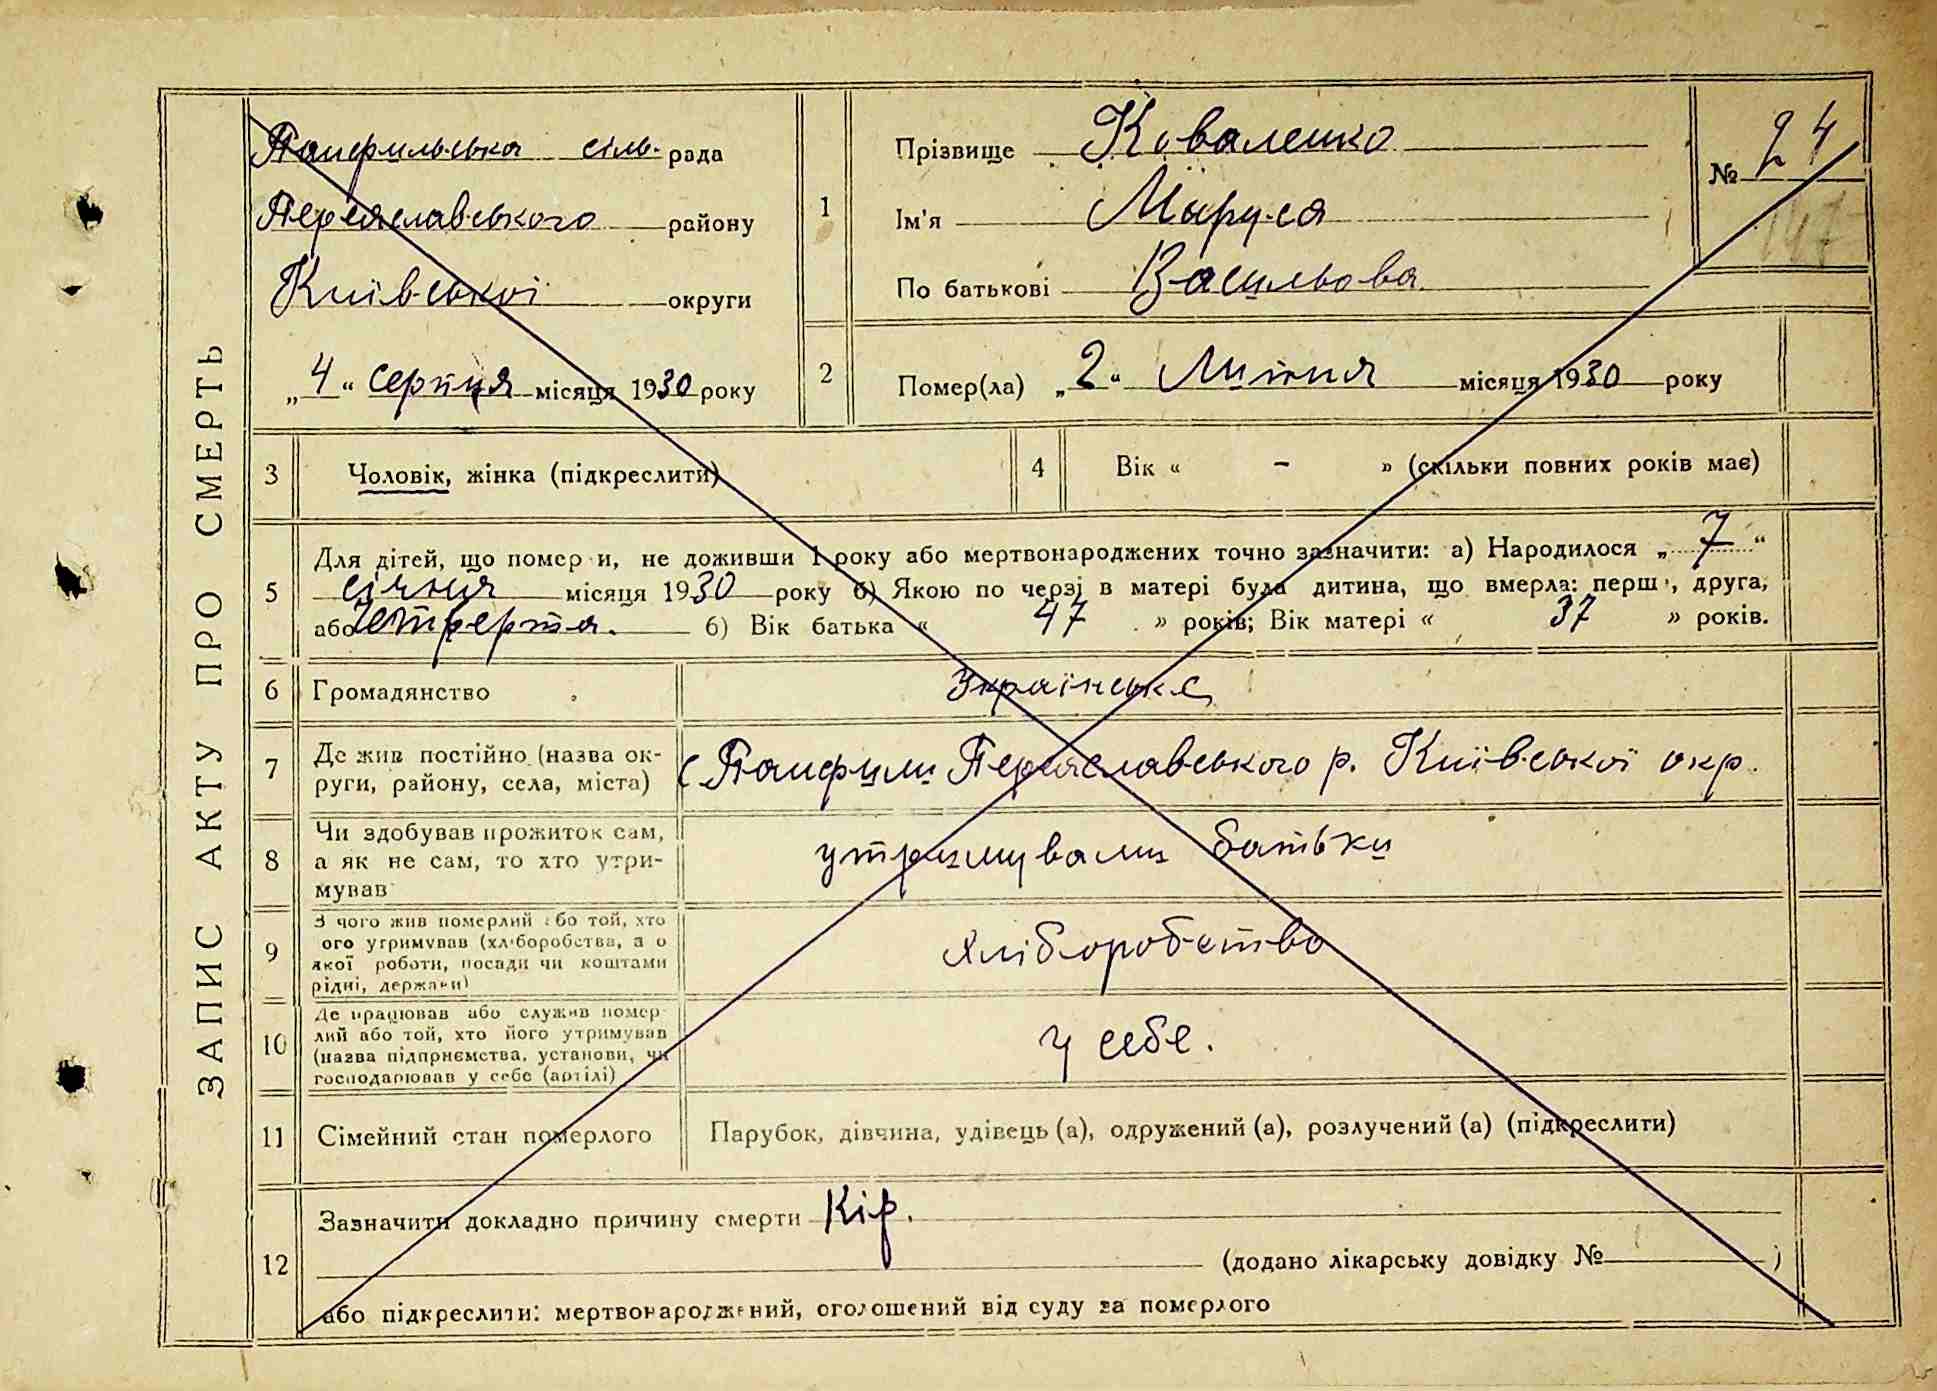 ЗАПИС АКТУ ПРО СМЕРТЬ
Панфильська сіль. рада
Переяславського району
Київської округи
„4“ серпня місяця 1930 року
1
Прізвище Коваленко
Ім'я Маруся
По батькові Васильова
№ 24
147
2
Помер(ла) „2“ Липня місяця 1930 року
3
Чоловік, жінка (підкреслити)
4
Вік « – » (скільки повних років має)
5
Для дітей, що помер и, не доживши 1 року або мертвонароджених точно зазначити: а) Народилося „7“
січня місяця 1930 року б) Якою по черзі в матері була дитина, що вмерла: перш , друга,
або четверта. 6) Вік батька « 47 » років; Вік матері « 37 » років.
6
Громадянство
Українське
7
Де жив постійно (назва ок-
руги, району, села, міста)
с Панфили Переяславського р. Київської окр.
8
Чи здобував прожиток сам,
а як не сам, то хто утри-
мував
утримували батьки
9
З чого жив померлий бо той, хто
ого утримував (хліборобства, з о
якої роботи, посади чи коштами
рідні, держави)
хліборобство
10
Де працював або служив помер
лий або той, хто його утримував
(назва підприємства, установи, чи
господарював у себе (артілі)
у себе.
11
Сімейний стан померлого
Парубок, дівчина, удівець (а), одружений (а), розлучений (а) (підкреслити)
12
Зазначити докладно причину смерти Кір.
(додано лікарську довідку № )
або підкреслити: мертвонароджений, оголошений від суду за померлого